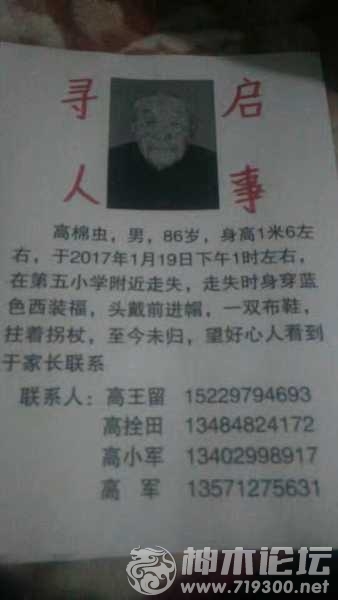 寻 启
人 事
高棉虫，男，86岁，身高1米6左
右，于2017年1月19日下午1时左右，
在第五小学附近走失，走失时身穿蓝
色西装福，头戴前进帽，一双布鞋，
拄着拐杖，至今未归，望好心人看到
于家长联系
联系人：高王留 15229794693
高拴田 13484824172
高小军 13402998917
高 军 13571275631
神木论坛
www.719300.net